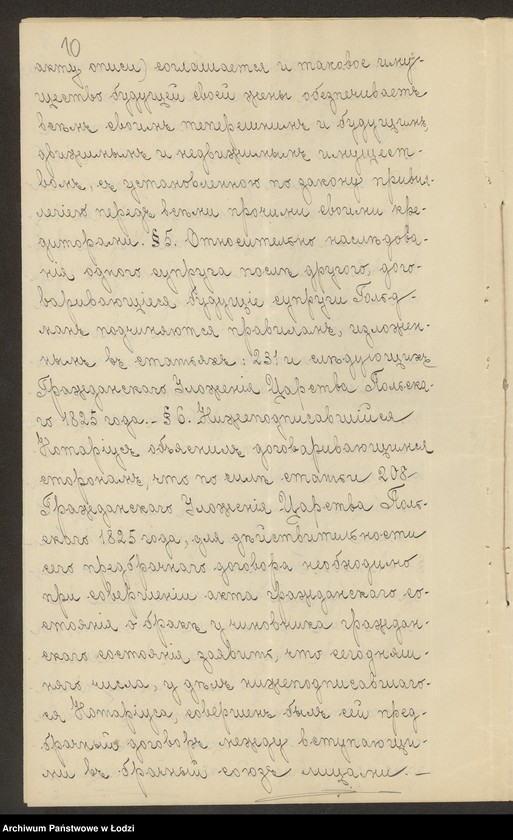 10
акту описи) соглашается и таковое иму-
щество будущей своей жены обезпечиваетъ
всѣмъ своимъ теперешнимъ и будущимъ,
движимымъ и недвижимымъ имущест-
вомъ, съ установленною по закону привил-
легіею передъ всѣми прочими своими кре-
диторами. § 5. Относительно наслѣдова-
нія одного супруга послѣ другого, дого-
варивающіеся будущіе супруги Гольд-
манъ подчиняются правиламъ, изложен-
нымъ въ статьяхъ: 231 и слѣдующихъ
Гражданскаго Уложенія Царства Польска-
го 1825 года. – § 6. Нижеподписавшійся
Нотаріусъ объяснилъ договаривающимся
сторонамъ, что по силѣ статьи 208
Гражданскаго Уложенія Царства Поль-
скаго 1825 года, для дѣйствительности
сего предбрачнаго договора необходимо
при совершеніи акта гражданскаго со-
стоянія о бракѣ у чиновника граждан-
скаго состоянія заявить, что сегодняш-
няго числа, у дѣлъ нижеподписавшаго-
ся Нотаріуса, совершенъ былъ сей пред-
брачный договоръ между вступающи-
ми въ брачный союзъ лицами. –
Archiwum Państwowe w Łodzi